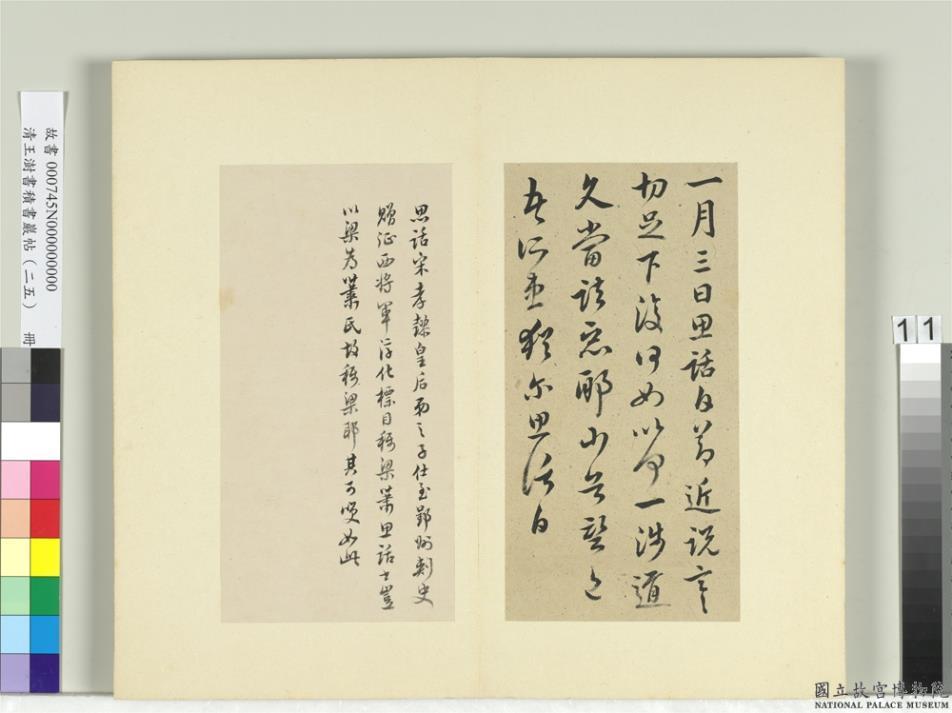 一月三日思話白節近說音
切足下復何如以為一涉道
久當諠耶山無
思話白
思話宋孝懿皇后弟之子仕至郢州刺史
贈征西將軍淳化標目稱梁蕭思話士豈
以梁為蕭氏故稱梁耶其可嘆如此
故書 000745N000000000
清王澍書積書巖帖(二五) 冊
11
國立故宮博物院
NATIONAL PALACE MUSEUM